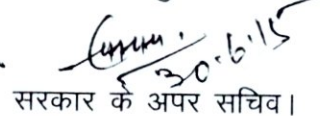 30.6.15
सरकार के अपर सचिव।